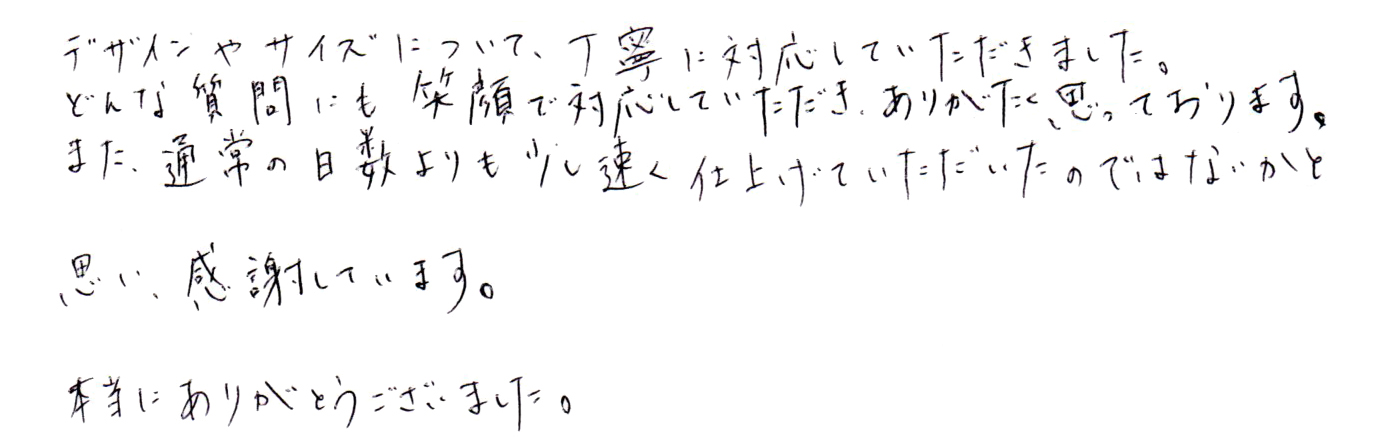 デザインやサイズについて、丁寧に対応していただきました。
どんな質問にも笑顔で対応していただき、ありがたく思っております。
また、通常の日数よりも少し速く仕上げていただいたのではないかと
思い、感謝しています。
本当にありがとうございました。